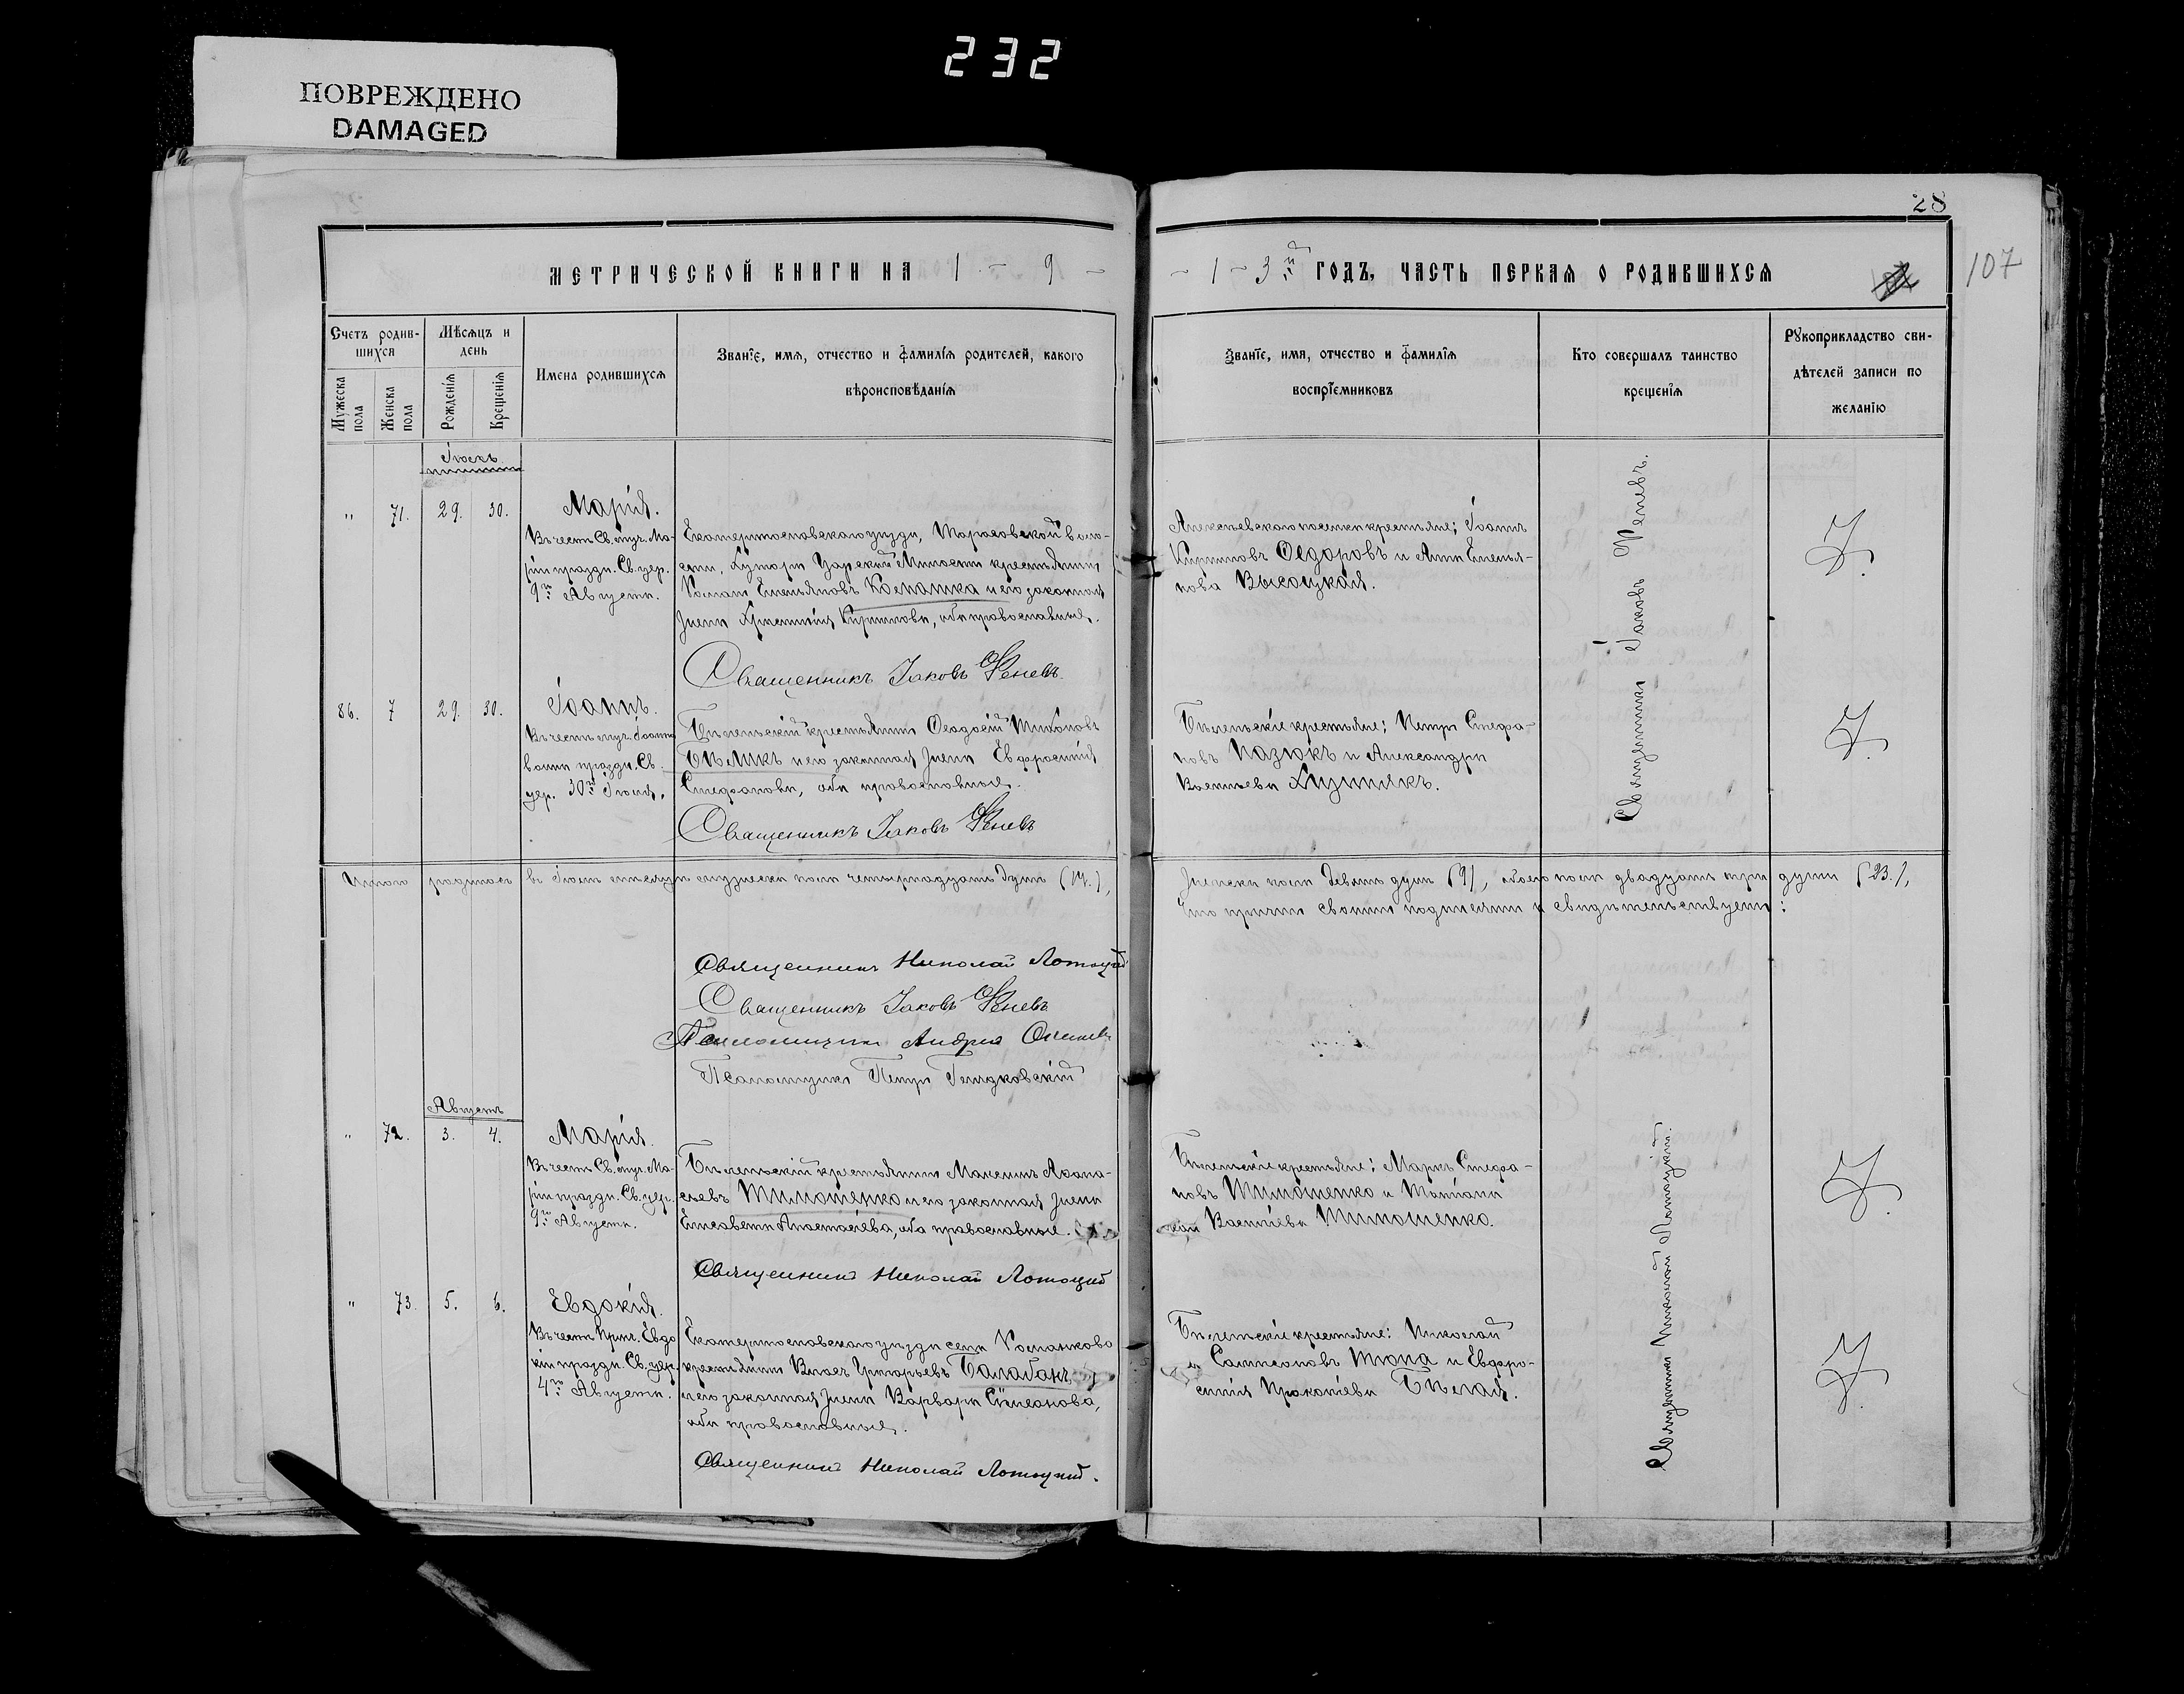 232
ПОВРЕЖДЕНО
DAMAGED
28
107
МЕТРИЧЕСКОЙ КНИГИ НА 1 - 9 -
- 1 - 3й ГОДЪ, ЧАСТЬ ПЕРВАЯ О РОДИВШИХСЯ
Счетъ родив-
шихся
Мужеска пола
Женска пола
Мѣсяцъ и день
Рожденія
Крещенія
Имена родившихся
Званіе, имя, отчество и фамилія родителей, какого
вѣроисповѣданія
Званіе, имя, отчество и фамилія
воспріемниковъ
Кто совершалъ таинство
крещенія
Рукоприкладство сви-
дѣтелей записи по
желанію
" 71. 29. 30.
Марія.
Въ честь Св. муч. Ма-
ріи праздн. Св. цер.
9го Августа.
Екатеринославскаго уѣзда, Тарасовской воло-
сти, Хутора Царской Милости крестьянинъ
Роман Емельяновъ Космашка и его законная
жена Христинія Кириллова, оба православные.
Священникъ Іаковъ
Алексѣевскаго поселка крестьяне: Іоаннъ
Кирилловъ Ѳедоровъ и Анна Емелья-
нова Высоцкая.
Священникъ Іаковъ
86. 7 29. 30.
Іоаннъ.
Въ честь муч. Іоанна
воина праздн. Св.
цер. 30го Іюля.
Бѣленьскій крестьянинъ Ѳеодосій Тихоновъ
Бѣликъ и его законная жена Евфросинія
Стефанова, оба православные.
Священникъ Іаковъ
Бѣленьскіе крестьяне: Петръ Стефа-
новъ Пазюкъ и Александра
Васильева
Итого родилось въ Іюлѣ мѣсяцѣ мужеска пола четырнадцать душъ (14.),
женска пола девять душъ (9), обоего пола двадцать три души (23.),
Что причтъ своими подписями и свидѣтельствуетъ:
Священникъ Николай Лотоцкій
Священникъ Іаковъ
Псаломщикъ Андрей
Псаломщикъ Петръ
Августъ
" 72. 3. 4.
Марія.
Въ честь Св. муч. Ма-
ріи праздн. Св. цер.
9го Августа.
Бѣленьскій крестьянинъ Максимъ Аѳана-
сьевъ Тимошенко и его законная жена
Елисавета Анастасіева, оба православные.
Священникъ Николай Лотоцкій
Бѣленьскіе крестьяне: Маркъ Стефа-
новъ Тимошенко и Татіана
Василіева Тимошенко.
Священникъ Николай Лотоцкій.
" 73. 5. 6.
Евдокія.
Въ честь Прмч. Евдо
кіи праздн. Св. цер.
4го Августа.
Екатеринославскаго уѣзда села Романково
крестьянинъ Власъ Григорьевъ Балабанъ
и его законная жена Варвара Стефанова,
оба православные.
Священникъ Николай Лотоцкій.
Бѣленьскіе крестьяне: Николай
Самсоновъ Тюпа и Евфро-
синія Прокопіева Бѣлая.